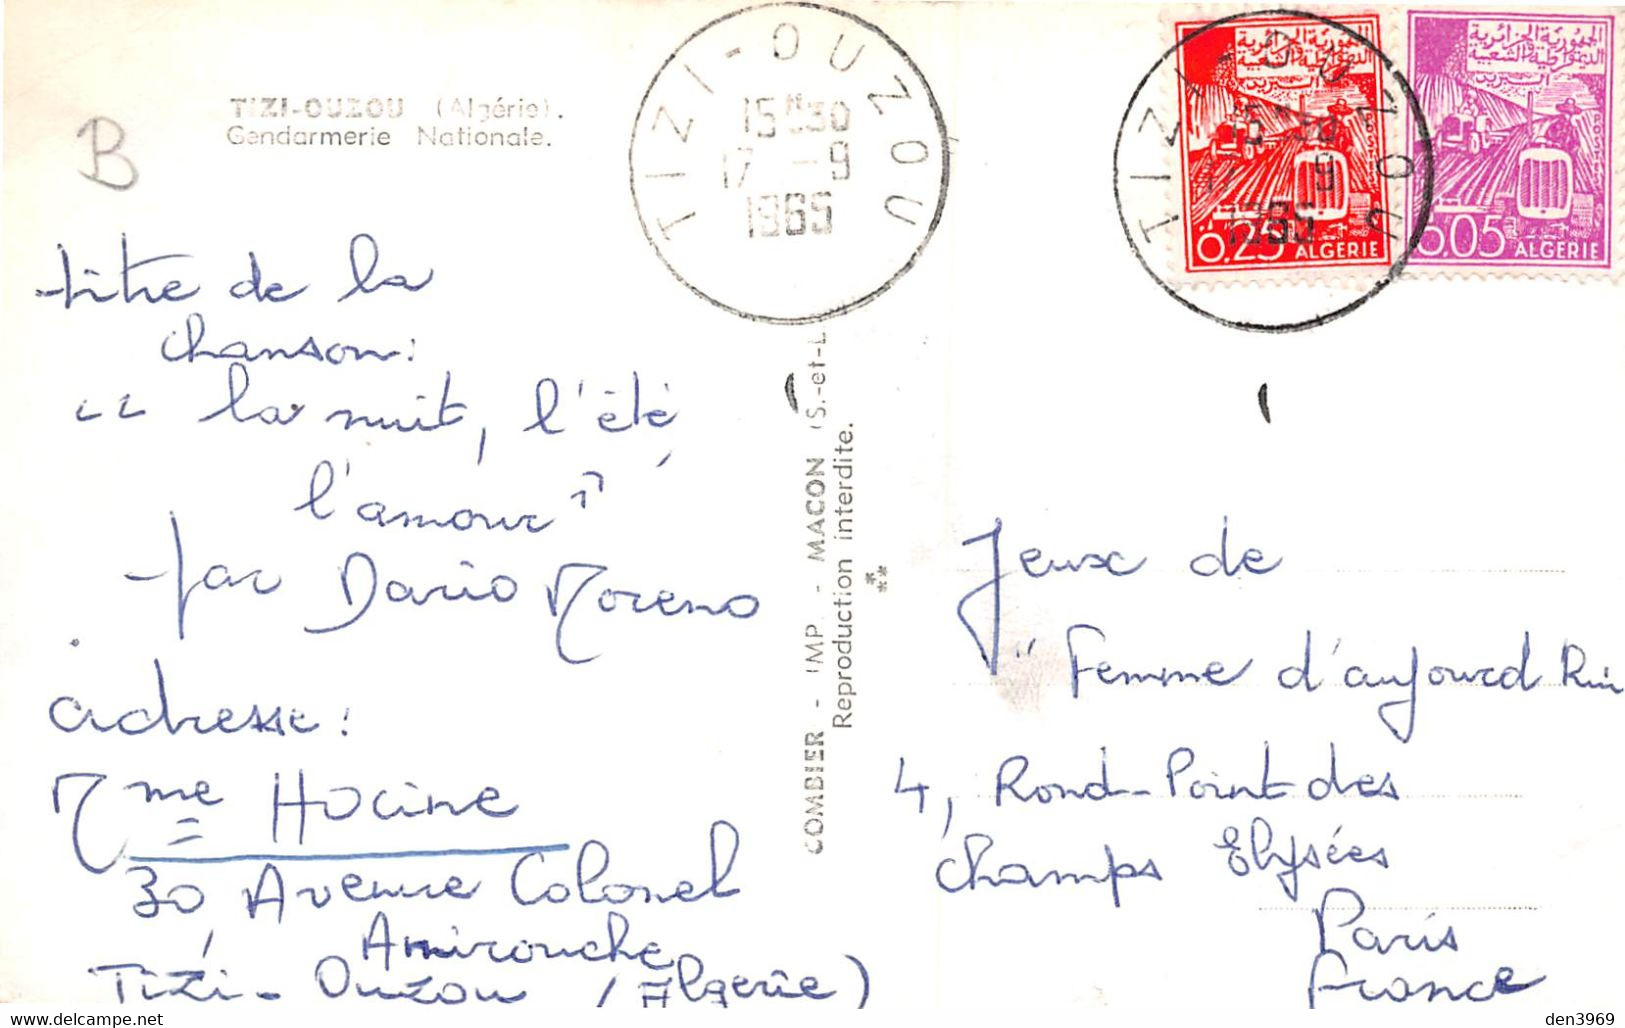 TIZI-OUZOU (Algérie).
Gendarmerie Nationale.
B
TIZI-OUZOU
15H30
17 -9
1965
TIZI-OUZOU
15H30
17 -9
1965
الجمهورية الجزائرية
الديموقراطية الشعبية
البريد
POSTES
0,25 ALGERIE
الجمهورية الجزائرية
الديموقراطية الشعبية
البريد
POSTES
0,05 ALGERIE
titre de la
chanson:
“ la nuit, l'été,
l'amour”
par Dario Moreno
adresse:
Mme Hocine
30 Avenue Colonel
Amirouche
Tizi-Ouzou (Algérie)
COMBIER - IMP. - MACON (S.-et-L
Reproduction interdite.
Jeux de
" Femme d'aujourd'hui
4, Rond-Point des
Champs Elysées
Paris
France
den3969